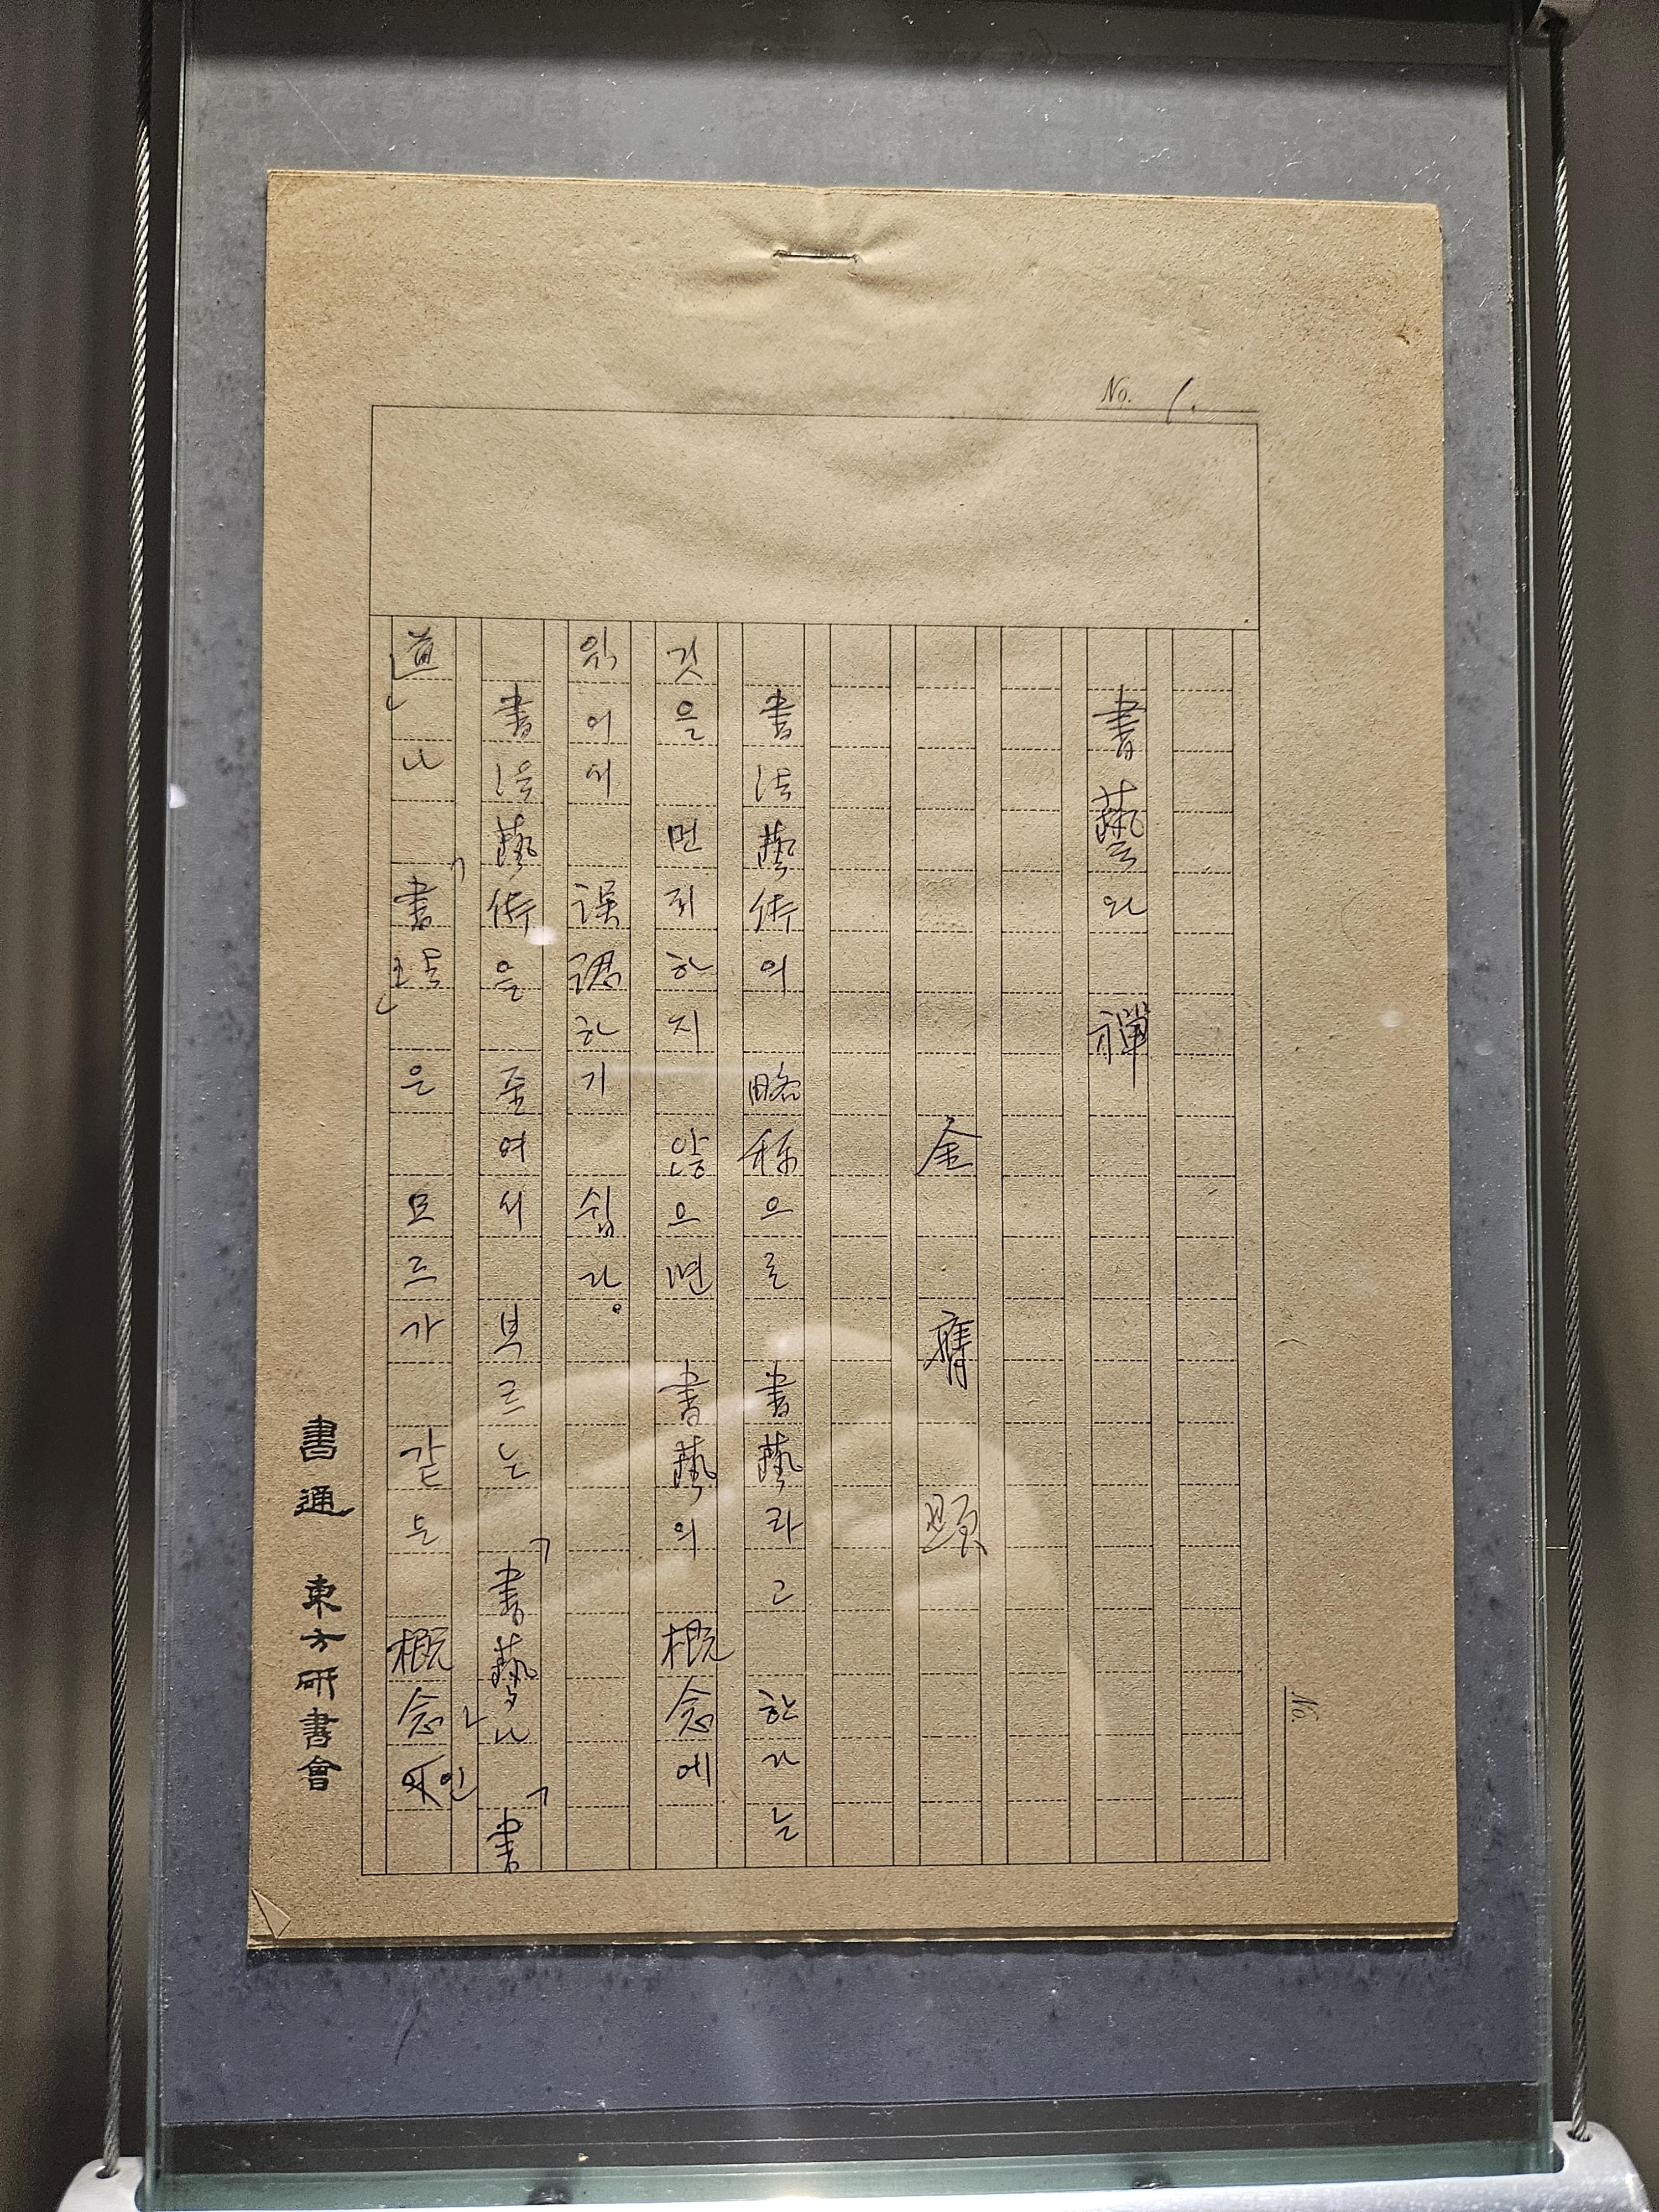 No. 1.
書藝와 禪
金 膺 顯
書法藝術의 略称으로 書藝라고 한다는
것을 먼저하지 않으면 書藝의 概念에
있어서 誤認하기 쉽다。
書法藝術을 줄여서 부르는 「書藝」나 「書
道」나 「書法」은 모두가 같은 概念인
書通 東方硏書會
No.